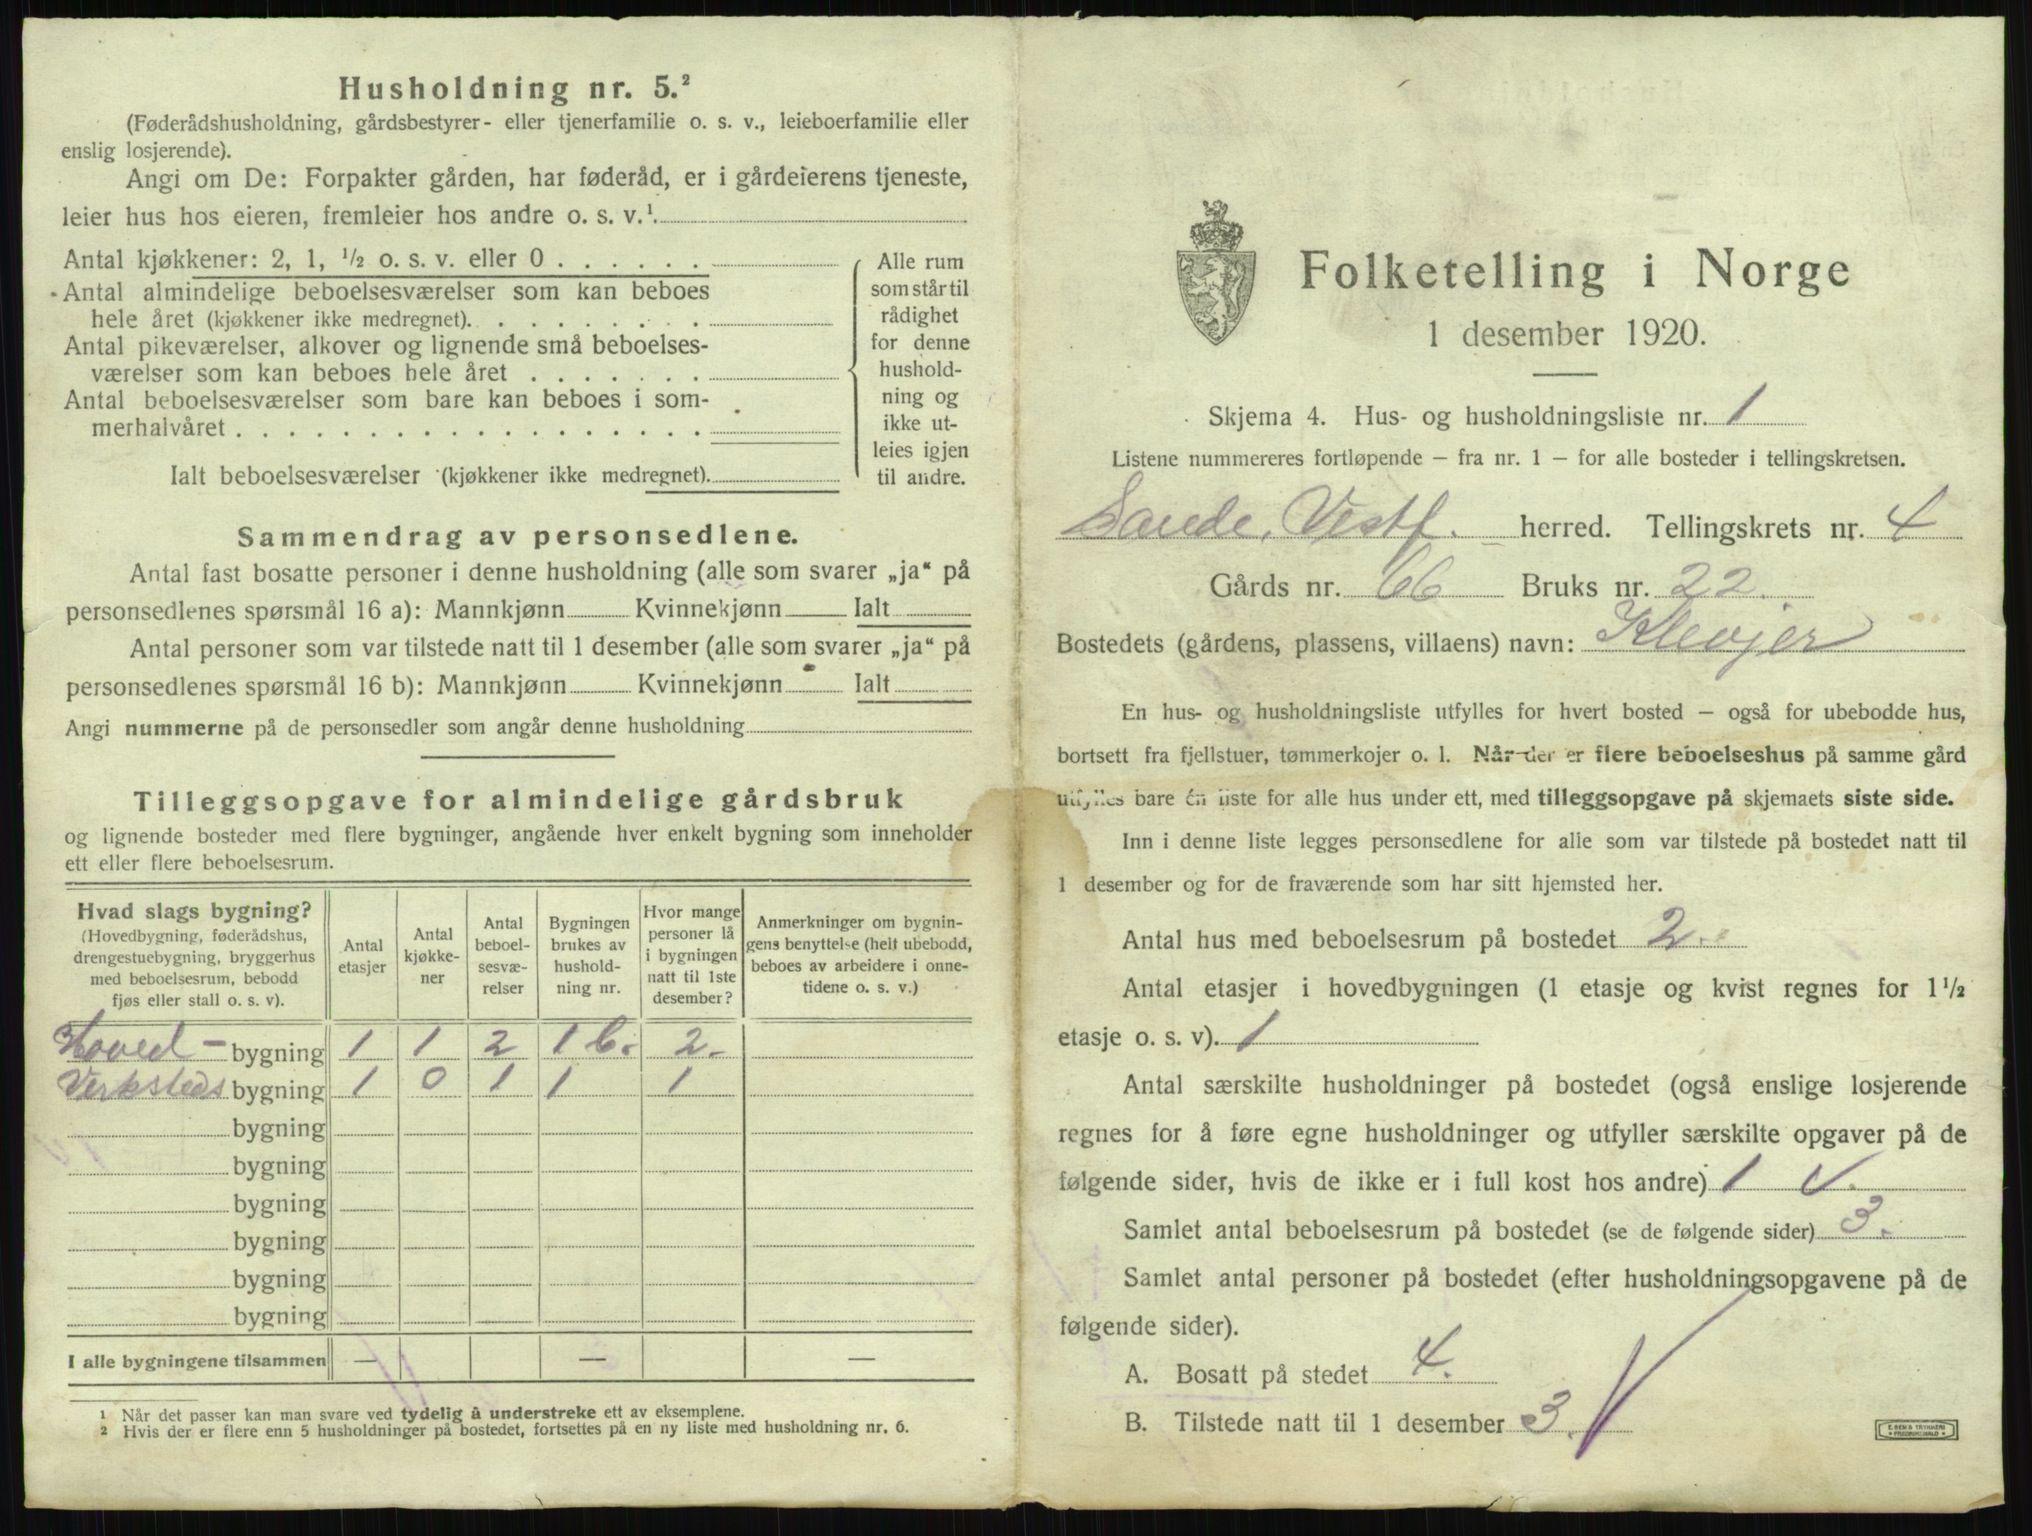 Husholdning nr. 5.²
(Føderådshusholdning, gårdsbestyrer- eller tjenerfamilie o. s. v., leieboerfamilie eller
enslig losjerende).
Angi om De: Forpakter gården, har føderåd, er i gårdeierens tjeneste,
leier hus hos eieren, fremleier hos andre o. s. v.¹
Antal kjøkkener: 2, 1, ½ o. s. v. eller 0 . . . . . .
Antal almindelige beboelsesværelser som kan beboes
hele året (kjøkkener ikke medregnet). . . . . . . . .
Antal pikeværelser, alkover og lignende små beboelses-
værelser som kan beboes hele året . . . . . . .
Antal beboelsesværelser som bare kan beboes i som-
merhalvåret . . . . . . . . . . . . . . . . . .
Ialt beboelsesværelser (kjøkkener ikke medregnet).
Alle rum
som står til
rådighet
for denne
hushold-
ning og
ikke ut-
leies igjen
til andre.
Sammendrag av personsedlene.
Antal fast bosatte personer i denne husholdning (alle som svarer „ja“ på
personsedlenes spørsmål 16 a): Mannkjønn Kvinnekjønn Ialt
Antal personer som var tilstede natt til 1 desember (alle som svarer „ja“ på
personsedlenes spørsmål 16 b): Mannkjønn Kvinnekjønn Ialt
Angi nummerne på de personsedler som angår denne husholdning
Tilleggsopgave for almindelige gårdsbruk
og lignende bosteder med flere bygninger, angående hver enkelt bygning som inneholder
ett eller flere beboelsesrum.
Hvad slags bygning?
(Hovedbygning, føderådshus,
drengestuebygning, bryggerhus
med beboelsesrum, bebodd
fjøs eller stall o. s. v).
Antal
etasjer
Antal
kjøkke-
ner
Antal
beboel-
sesvæ-
relser
Bygningen
brukes av
hushold-
ning nr.
Hvor mange
personer lå
i bygningen
natt til 1ste
desember?
Anmerkninger om bygnin-
gens benyttelse (helt ubebodd,
beboes av arbeidere i onne-
tidene o. s. v.)
Hoved- bygning 1 1 2 1 b. 2.
Verksteds bygning 1 0 1 1 1
bygning
bygning
bygning
bygning
bygning
bygning
I alle bygningene tilsammen — — —
¹ Når det passer kan man svare ved tydelig å understreke ett av eksemplene.
² Hvis der er flere enn 5 husholdninger på bostedet, fortsettes på en ny liste med husholdning nr. 6.
Folketelling i Norge
1 desember 1920.
Skjema 4. Hus- og husholdningsliste nr. 1
Listene nummereres fortløpende – fra nr. 1 – for alle bosteder i tellingskretsen.
Sande, Vestf. herred. Tellingskrets nr. 4
Gårds nr. 66 Bruks nr. 22.
Bostedets (gårdens, plassens, villaens) navn: Klevjer
En hus- og husholdningsliste utfylles for hvert bosted – også for ubebodde hus,
bortsett fra fjellstuer, tømmerkojer o. l. Når der er flere beboelseshus på samme gård
utfylles bare én liste for alle hus under ett, med tilleggsopgave på skjemaets siste side.
Inn i denne liste legges personsedlene for alle som var tilstede på bostedet natt til
1 desember og for de fraværende som har sitt hjemsted her.
Antal hus med beboelsesrum på bostedet 2.
Antal etasjer i hovedbygningen (1 etasje og kvist regnes for 1½
etasje o. s. v). 1
Antal særskilte husholdninger på bostedet (også enslige losjerende
regnes for å føre egne husholdninger og utfyller særskilte opgaver på de
følgende sider, hvis de ikke er i full kost hos andre) 1
Samlet antal beboelsesrum på bostedet (se de følgende sider) 3.
Samlet antal personer på bostedet (efter husholdningsopgavene på de
følgende sider).
A. Bosatt på stedet 4.
B. Tilstede natt til 1 desember 3.